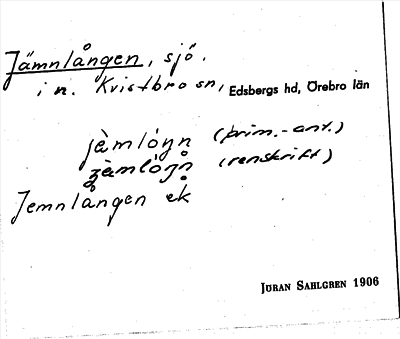 Jämnlången, sjö.
i n. Kvistbro sn, Edsbergs hd, Örebro län
jämlóŋn (prim.-ant.)
jämlóŋn (renskrift)
Jemnlången ek
JÖRAN SAHLGREN 1906